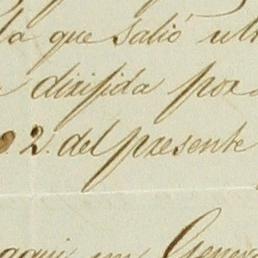 la que salió
dirijida por
2. del presente
aqui un Genera